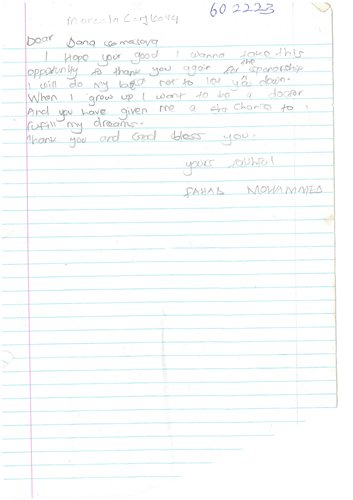 60 2223
Dear Dana
I Hope your good I wanna take this
opportunity to thank you again for the sponsorship
I will do my best not to let you down.
When I grow up I want to be a doctor
And you have given me a chance to
fulfill my dreams.
Thank you and God bless you.
yours
FAHAD MOHAMMED